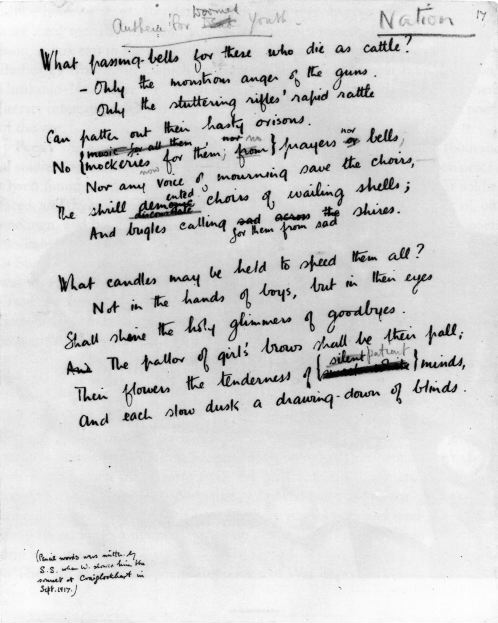 Anthem for Dead Doomed Youth -
Nation
17
What passing-bells for these who die as cattle?
- Only the monstrous anger of the guns.
Only the stuttering rifles' rapid rattle
Can patter out their hasty orisons.
music for all them nor no
No { mockeries for them; from } prayers or nor bells,
now
Nor any voice of mourning save the choirs, -
ented
The shrill demons choirs of wailing shells;
disconsolate
And bugles calling sad across the shires.
for them from sad
What candles may be held to speed them all?
Not in the hands of boys, but in their eyes
Shall shine the holy glimmers of goodbyes.
And The pallor of girls' brows shall be their pall;
silent patient
Their flowers the tenderness of { } minds,
And each slow dusk a drawing-down of blinds.
(Pencil words were written by
S.S. when W. showed him the
sonnet at Craiglockhart in
Sept. 1917.)